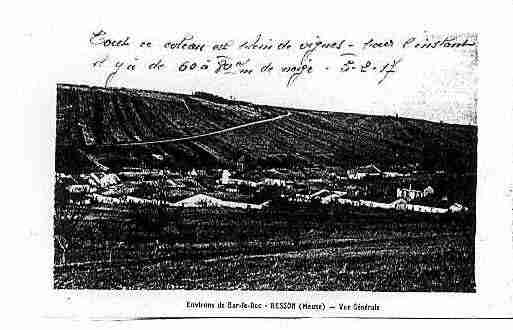 Tout ce coteau est plein de vignes - pour l'instant
il y a de 60 à 80 c/m de neige - 5-2-17
Environs de Bar-le-Duc - RESSON (Meuse) - Vue Générale